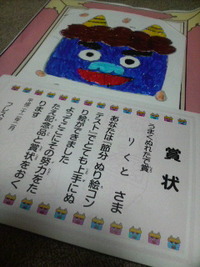 賞状
うまくぬれたで賞
りくと さま
あなたは「節分 ぬり絵コン
テスト」でとても上手にぬ
り絵ができました
よってここにその努力をた
たえ記念品と賞状をおく
ります